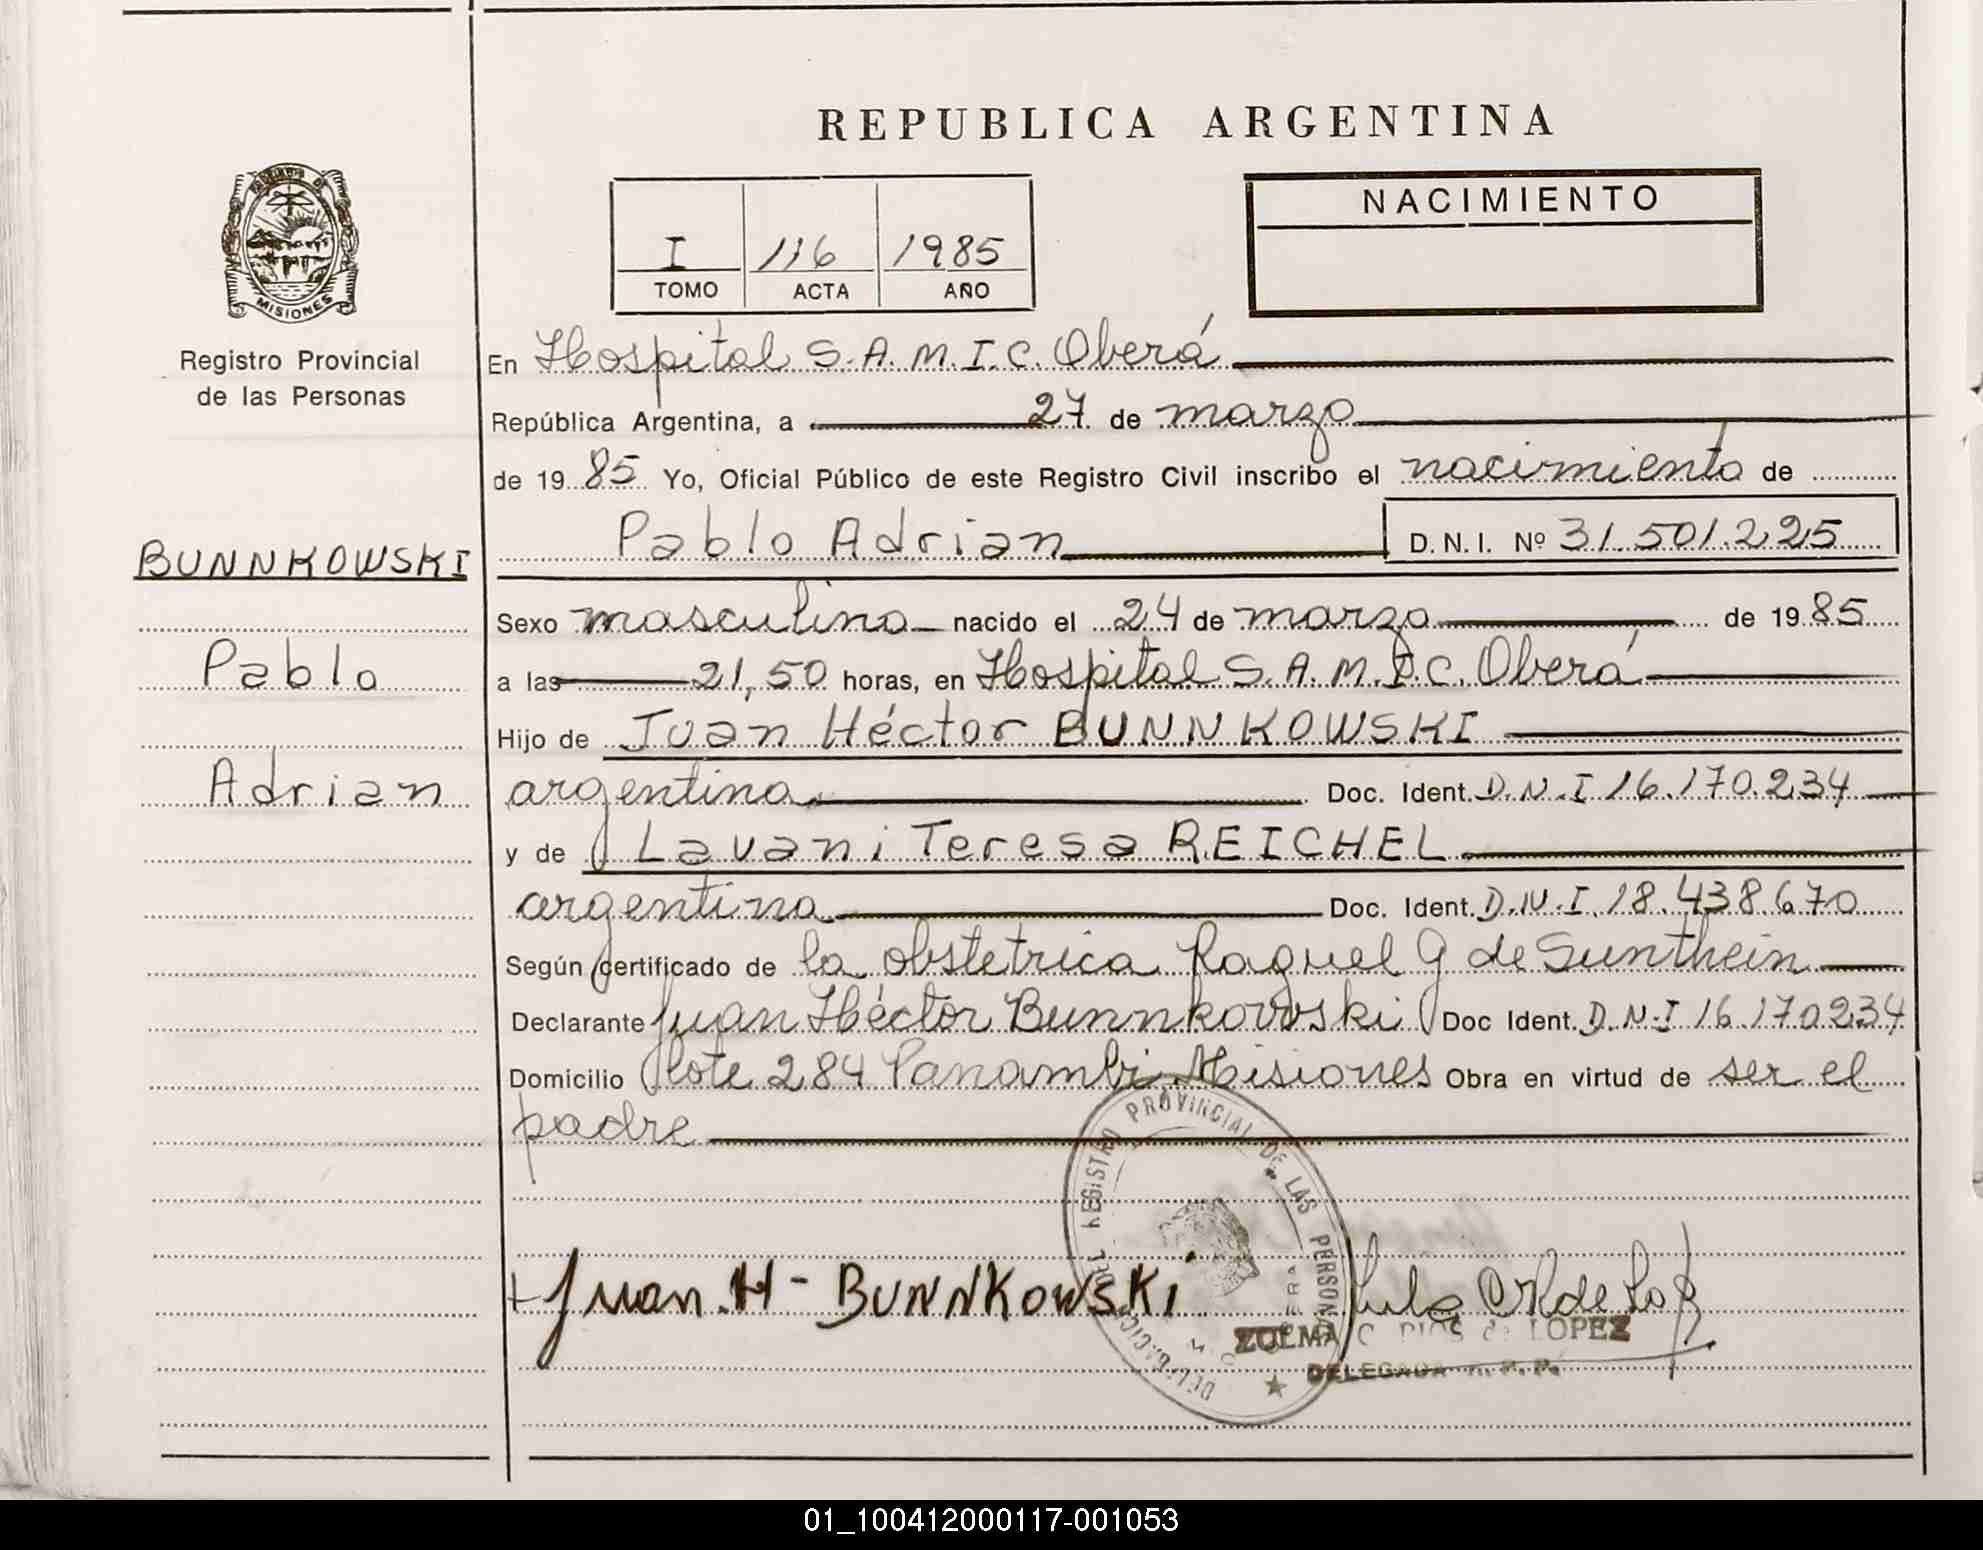 REPUBLICA ARGENTINA
PROVINCIA DE
MISIONES
Registro Provincial
de las Personas
I 116 1985
TOMO ACTA AÑO
NACIMIENTO
En Hospital S.A.M.I.C. Oberá
República Argentina, a 27 de marzo
de 1985 Yo, Oficial Público de este Registro Civil inscribo el nacimiento de
Pablo Adrian D.N.I. Nº 31.501.225
BUNNKOWSKI
Pablo
Adrian
Sexo masculino nacido el 24 de marzo de 1985
a las 21,50 horas, en Hospital S.A.M.I.C. Oberá
Hijo de Juan Héctor BUNNKOWSKI
argentina Doc. Ident. D.N.I 16.170.234
y de Lavani Teresa REICHEL
argentina Doc. Ident. D.N.I. 18.438.670
Según certificado de la obstetrica Raquel G de Sunthein
Declarante Juan Héctor Bunnkowski Doc Ident. D.N.I 16.170234
Domicilio lote 284 Panambi Misiones Obra en virtud de ser el
padre
REGISTRO PROVINCIAL DE LAS PERSONAS
Juan.H-BUNNKOWSKi
ZULMA C. RIOS de LOPEZ
DELEGADA
01_100412000117-001053